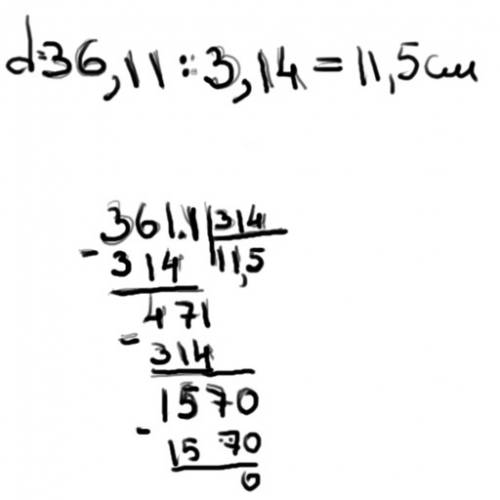 d=36,11:3,14=11,5см
361.1 314
- 314 11,5
471
- 314
1570
- 1570
0